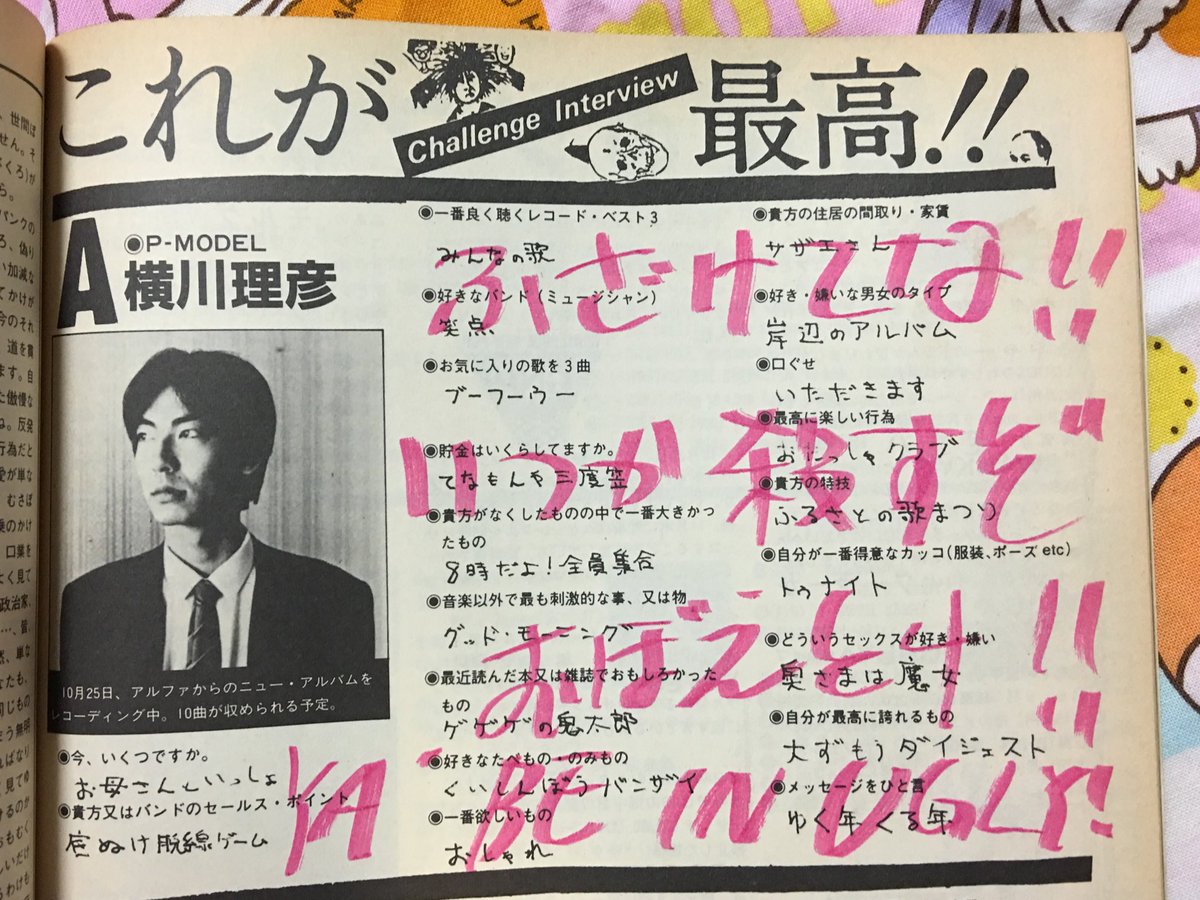 世間ぽ
せん。そ
くろ)が
ら。
パンクの
ろ、偽り
い加減な
てかけが
今のそれ
道を貫
ます。自
た傲慢な
ね。反発
行為だと
愛が単な
むさぼ
乗のかけ
口業を
よく見て
政治家、
…、皆、
然、単な
なたも、
同じもの
そう無明
ればなり
く見てゆ
きるのか
おもむく
しいだけ
るわけも
これが
Challenge Interview
最高!!
A
◉P-MODEL
横川理彦
10月25日、アルファからのニュー・アルバムを
レコーディング中。10曲が収められる予定。
◉今、いくつですか。
お母さんといっしょ
◉貴方又はバンドのセールス・ポイント
底ぬけ脱線ゲーム
◉一番良く聴くレコード・ベスト3
みんなの歌
◉好きなバンド(ミュージシャン)
笑点
◉お気に入りの歌を3曲
ブーフーウー
◉貯金はいくらしてますか。
てなもんや三度笠
◉貴方がなくしたものの中で一番大きかっ
たもの
8時だよ!全員集合
◉音楽以外で最も刺激的な事、又は物
グッド・モーニング
◉最近読んだ本又は雑誌でおもしろかった
もの
ゲゲゲの鬼太郎
◉好きなたべもの・のみもの
くいしんぼうバンザイ
◉一番欲しいもの
おしゃれ
◉貴方の住居の間取り・家賃
サザエさん
◉好き・嫌いな男女のタイプ
岸辺のアルバム
◉口ぐせ
いただきます
◉最高に楽しい行為
おにっしゃクラブ
◉貴方の特技
ふるさとの歌まつり
◉自分が一番得意なカッコ(服装、ポーズetc)
トゥナイト
◉どういうセックスが好き・嫌い
奥さまは魔女
◉自分が最高に誇れるもの
大ずもうダイジェスト
◉メッセージをひと言
ゆく年くる年
ふざけてな!!
いつか殺すぞ
おぼえとけ!!
YA BE IN UGLY!